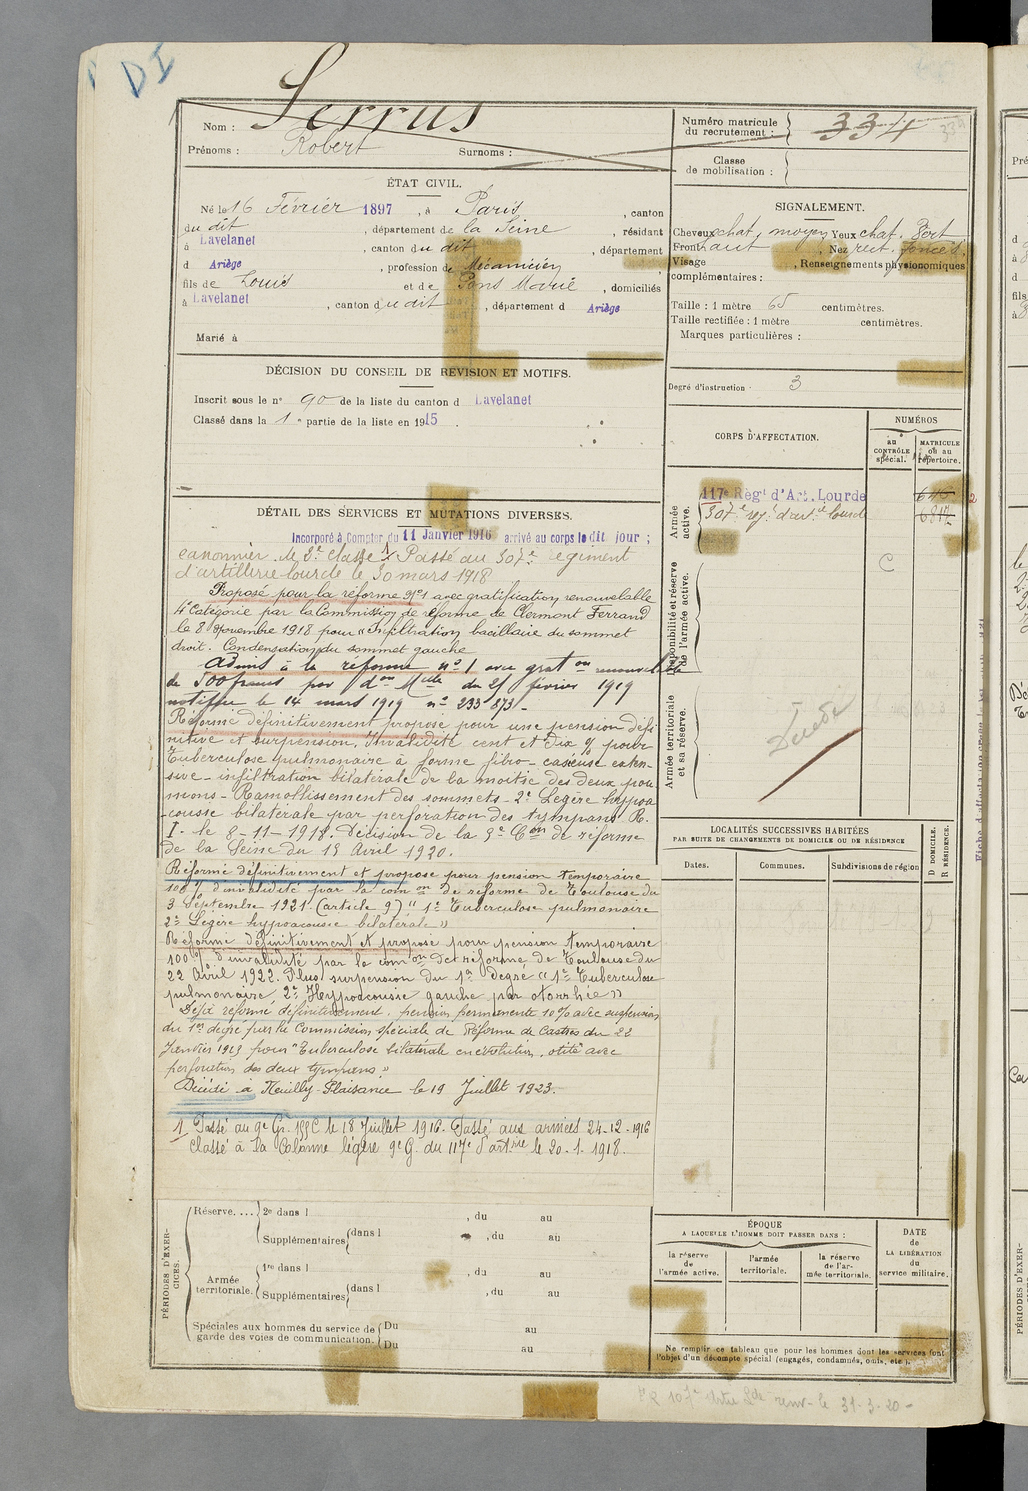 DI
Nom : Serrus
Prénoms : Robert Surnoms :
Numéro matricule du recrutement : 334
Classe de mobilisation :
ÉTAT CIVIL.
Né le 16 Février 1897, à Paris, canton
du dit, département de la Seine, résidant
à Lavelanet, canton du dit, département
d Ariège, profession de Mécanicien
fils de Louis et de Pons Marie, domiciliés
à Lavelanet, canton du dit, département d Ariège
Marié à
SIGNALEMENT.
Cheveux chat. moyen Yeux chat. vert foncés.
Front haut, Nez rect.
Visage, Renseignements physionomiques
complémentaires :
Taille : 1 mètre 65 centimètres.
Taille rectifiée : 1 mètre centimètres.
Marques particulières :
Degré d'instruction 3
DÉCISION DU CONSEIL DE REVISION ET MOTIFS.
Inscrit sous le n° 90 de la liste du canton d Lavelanet
Classé dans la 1e partie de la liste en 1915.
CORPS D'AFFECTATION.
NUMÉROS
au CONTRÔLE spécial.
MATRICULE ou au répertoire.
Armée active.
117e Régt d'Art. Lourde 646
307e reg.t d'art.ie lourde 6817
C
Disponibilité et réserve de l'armée active.
Armée territoriale et sa réserve.
Décédé
DÉTAIL DES SERVICES ET MUTATIONS DIVERSES.
Incorporé à Compter du 11 Janvier 1916 arrivé au corps le dit jour ;
canonnier de 2e classe 1/ Passé au 307e régiment
d'artillerie lourde le 30 mars 1918
Proposé pour la réforme N°1 avec gratification renouvelable
4e Catégorie par la Commission de réforme de Clermont Ferrand
le 8 Novembre 1918 pour "Infiltration bacillaire du sommet
droit. Condensation du sommet gauche
Admis à la réforme n° 1 avec grat on renouvelable
de 500 francs par d on Mlle du 25 février 1919
notifiée le 14 mars 1919 n° 233 873 -
Réformé définitivement proposé pour une pension défi-
nitive et surpension. Invalidité cent et dix % pour
Tuberculose pulmonaire à forme fibro-caséuse exten-
sive - infiltration bilatérale de la moitié des deux pou-
mons - Ramollissement des sommets - 2° Légère hypoa-
cousie bilatérale par perforation des tympans R.
I. le 8-11-1918. Décision de la 3e Con de réforme
de la Seine du 13 Avril 1920.
Réformé définitivement et proposé pour pension temporaire
100 % d'invalidité par la com on de réforme de Toulouse du
3 Septembre 1921. (article 9) " 1° Tuberculose pulmonaire
2° Légère hypoacousie bilatérale "
Réformé définitivement et proposé pour pension temporaire
100 % d'invalidité par la com on de réforme de Toulouse du
22 Avril 1922. Plus surpension du 1er degré " 1° Tuberculose
pulmonaire, 2° Hypoacousie gauche par otorrhée "
Déjà réformé définitivement. pension permanente 10% avec suspension
du 1er degré par la Commission spéciale de Réforme de Castres du 22
Janvier 1923 pour "Tuberculose bilatérale en évolution, otite avec
perforation des deux tympans"
Décédé à Neuilly-Plaisance le 19 Juillet 1923.
1. Passé au 9e Gr. 155 C le 18 Juillet 1916. Passé aux armées 24-12-1916
Classé à la Colonne légère 9e G. du 117e d'art.rie le 20.1.1918.
LOCALITÉS SUCCESSIVES HABITÉES
PAR SUITE DE CHANGEMENTS DE DOMICILE OU DE RÉSIDENCE
Dates.
Communes.
Subdivisions de région
D DOMICILE. R RÉSIDENCE.
PÉRIODES D'EXERCICES.
Réserve.... 2e dans l , du au
Supplémentaires dans l , du au
Armée territoriale. 1re dans l , du au
Supplémentaires dans l , du au
Spéciales aux hommes du service de garde des voies de communication. Du au
Du au
ÉPOQUE
A LAQUELLE L'HOMME DOIT PASSER DANS :
la réserve de l'armée active.
l'armée territoriale.
la réserve de l'armée territoriale.
DATE DE LA LIBÉRATION du service militaire.
Ne remplir ce tableau que pour les hommes dont les services font
l'objet d'un décompte spécial (engagés, condamnés, omis, etc.).
le 31-3-20-